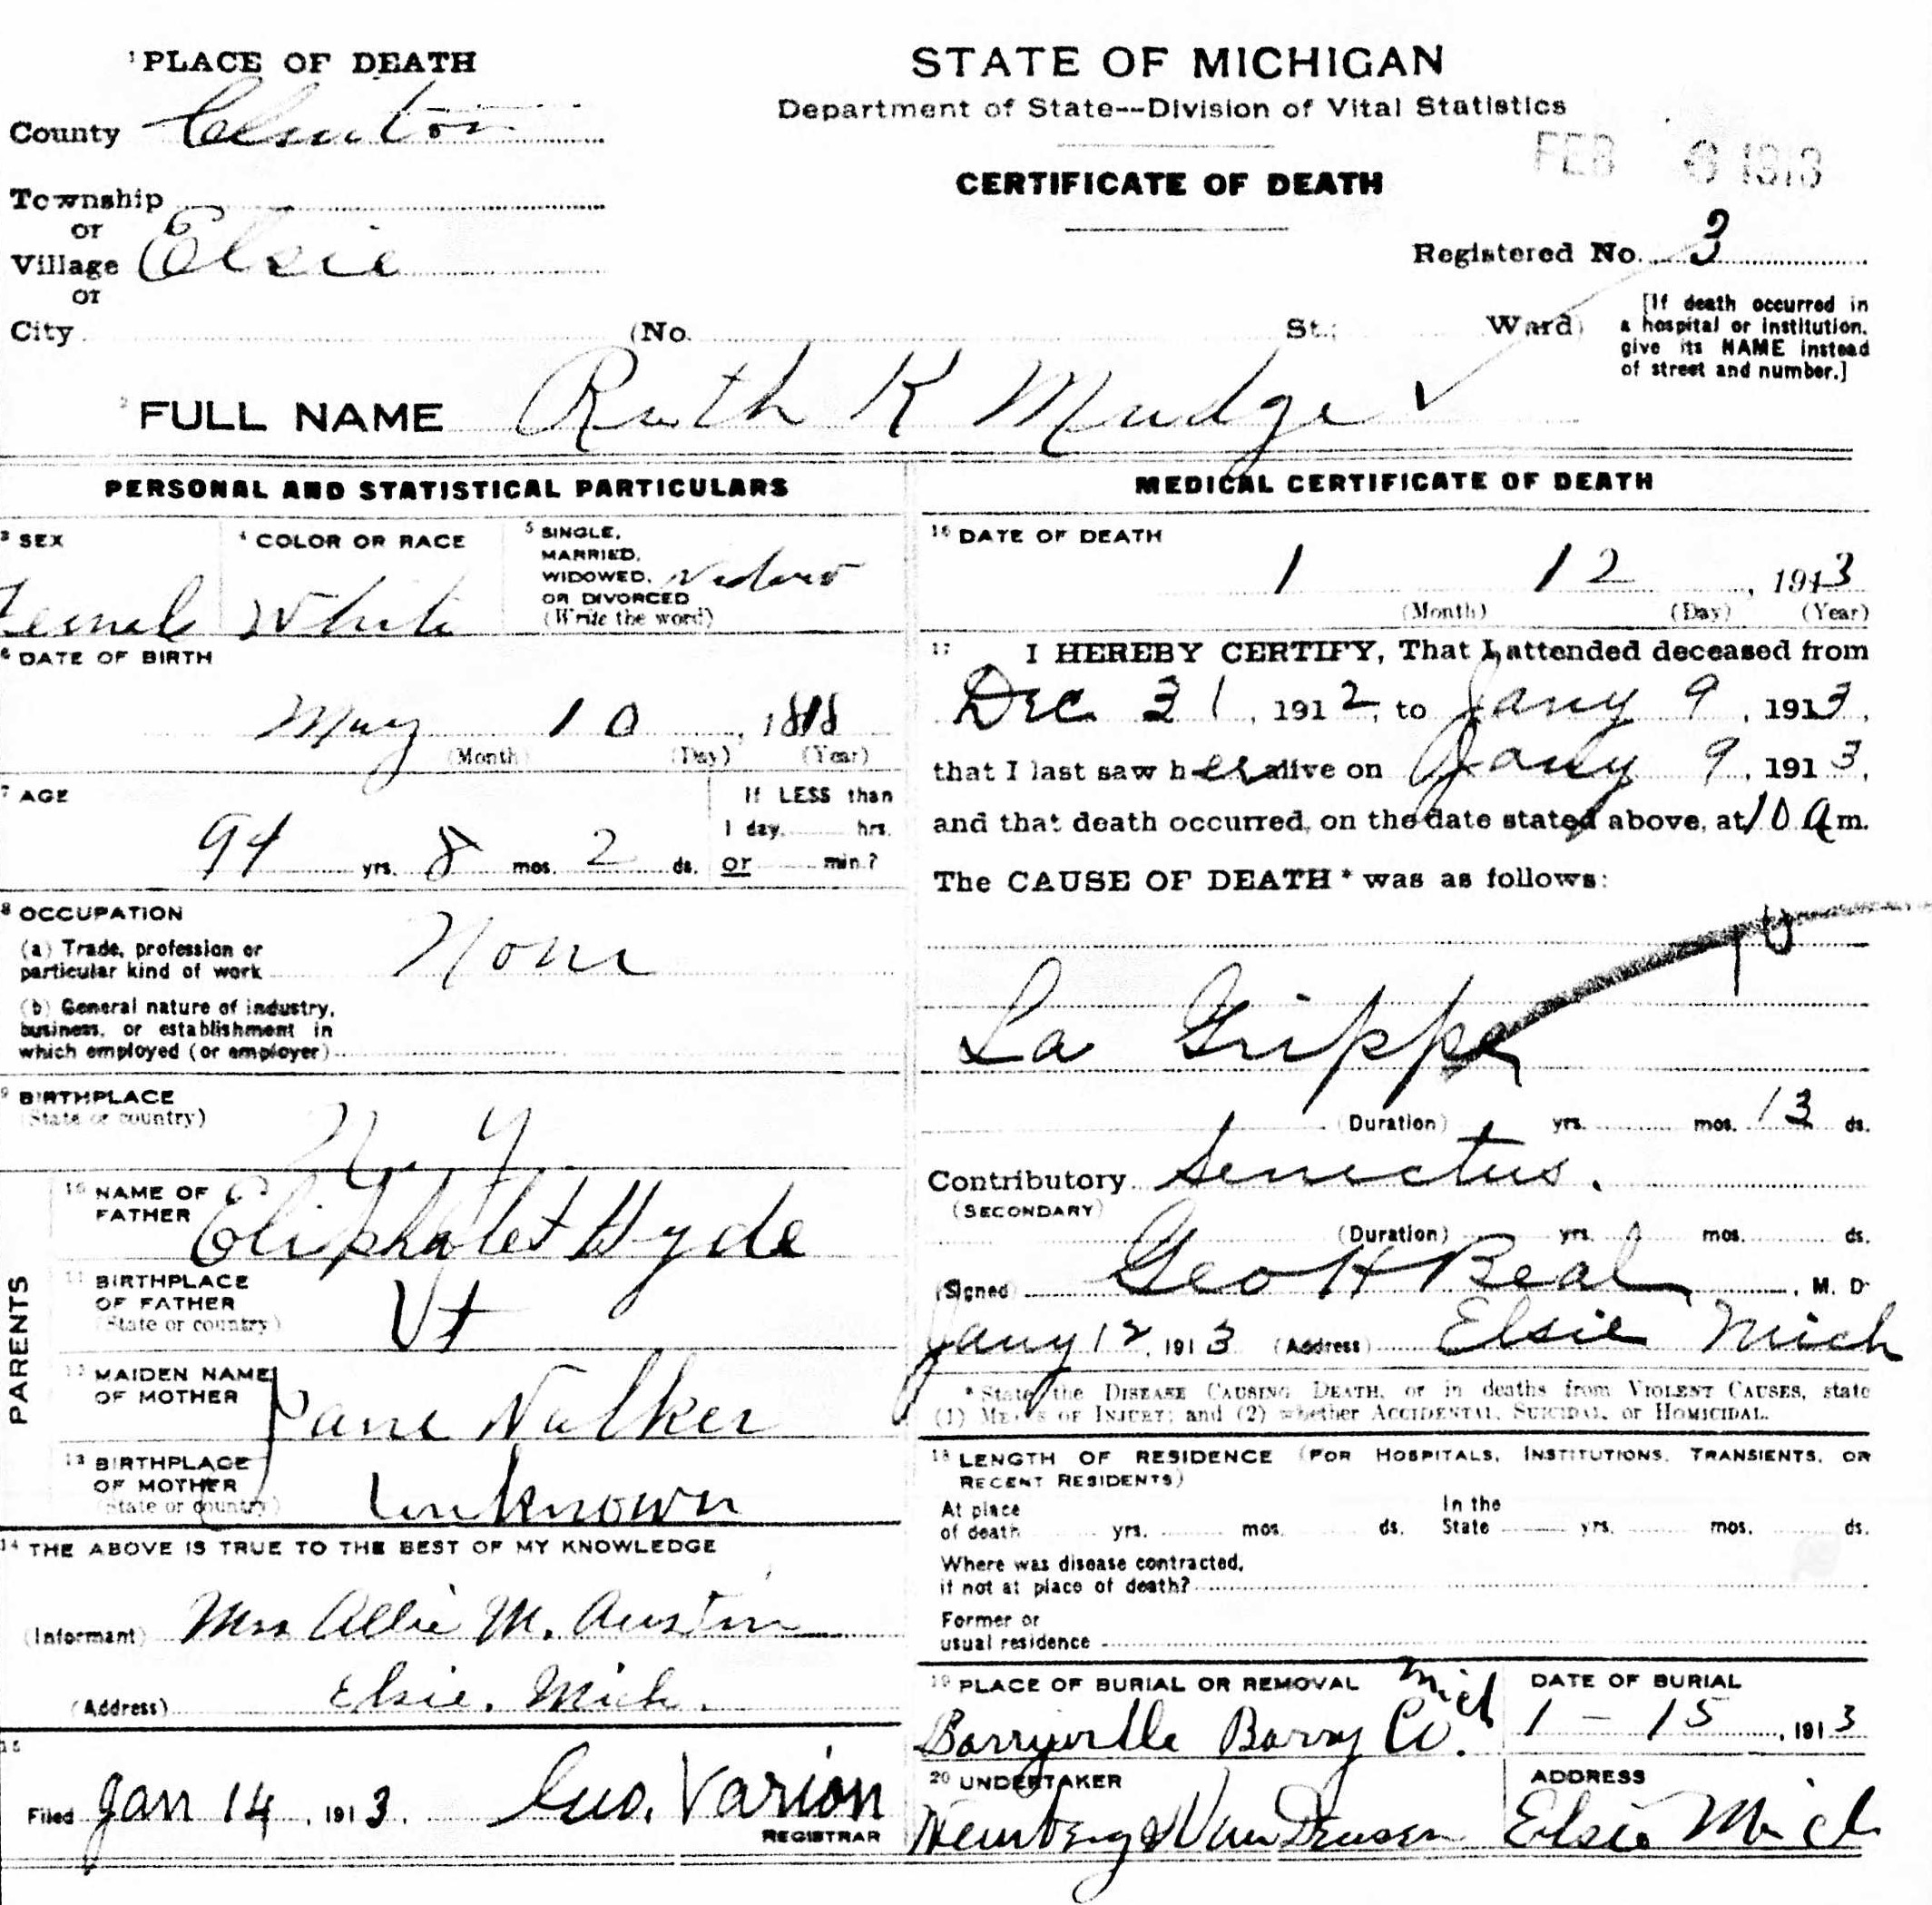 1 PLACE OF DEATH
County Clinton
Township
or
Village Elsie
or
City (No. St.; Ward)
STATE OF MICHIGAN
Department of State--Division of Vital Statistics
CERTIFICATE OF DEATH
FEB 6 1913
Registered No. 3
[If death occurred in
a hospital or institution,
give its NAME instead
of street and number.]
2 FULL NAME Ruth K Mudge
PERSONAL AND STATISTICAL PARTICULARS
3 SEX
Female
4 COLOR OR RACE
White
5 SINGLE,
MARRIED,
WIDOWED,
OR DIVORCED
(Write the word)
Widow
6 DATE OF BIRTH
May 10, 1818
(Month) (Day) (Year)
7 AGE
94 yrs. 8 mos. 2 ds.
If LESS than
1 day, hrs.
or min.?
8 OCCUPATION
(a) Trade, profession or
particular kind of work None
(b) General nature of industry,
business, or establishment in
which employed (or employer)
9 BIRTHPLACE
(State or country)
N. Y.
PARENTS
10 NAME OF
FATHER
Eliphalet Hyde
11 BIRTHPLACE
OF FATHER
(State or country)
Vt
12 MAIDEN NAME
OF MOTHER
Jane Walker
13 BIRTHPLACE
OF MOTHER
(State or country)
Unknown
14 THE ABOVE IS TRUE TO THE BEST OF MY KNOWLEDGE
(Informant) Mrs Allie M. Austin
(Address) Elsie, Mich.
15
Filed Jan 14, 1913. Geo. Varion
REGISTRAR
MEDICAL CERTIFICATE OF DEATH
16 DATE OF DEATH
1 12, 1913
(Month) (Day) (Year)
17 I HEREBY CERTIFY, That I attended deceased from
Dec 31, 1912, to Jany 9, 1913,
that I last saw her alive on Jany 9, 1913,
and that death occurred, on the date stated above, at 10 A m.
The CAUSE OF DEATH* was as follows:
10
La Grippe
(Duration) yrs. mos. 13 ds.
Contributory Senectus.
(SECONDARY)
(Duration) yrs. mos. ds.
(Signed) Geo H Beal, M. D.
Jany 12, 1913 (Address) Elsie Mich
*State the DISEASE CAUSING DEATH, or in deaths from VIOLENT CAUSES, state
(1) MEANS OF INJURY; and (2) whether ACCIDENTAL, SUICIDAL, or HOMICIDAL.
18 LENGTH OF RESIDENCE (FOR HOSPITALS, INSTITUTIONS, TRANSIENTS, OR
RECENT RESIDENTS)
At place
of death yrs. mos. ds.
In the
State yrs. mos. ds.
Where was disease contracted,
if not at place of death?
Former or
usual residence
19 PLACE OF BURIAL OR REMOVAL
Barryville Barry Co. Mich
DATE OF BURIAL
1 - 15, 1913
20 UNDERTAKER
& VanDeusen
ADDRESS
Elsie Mich